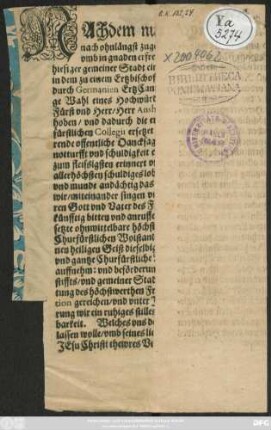 Ya
5274
NAchdem nu
nach ohnlängst zuge
vmb in gnaden erfre
hiesiger gemeiner Stadt ei
in dem zu einem Ertzbischof
durch Germanien Ertz Can
ge Wahl eines Hochwürt
Fürst vnd Herr/ Herr Ansh
hoben/ vnd dadurch die er
fürstlichen Collegii ersetzet
rende offentliche Dancksag
notturfft vnd schuldigkeit e
zum fleissigsten erinnert vn
allerhöchsten schuldigsies h
vnd munde andächtig das
wir/miteinander singen vn
ren Gott vnd Vater des F
künfftig bitten vnd anruffe
setzte ohnmittelbare höchst
Churfürstlichen Wolstant
nen heiligen Geist dieselbig
vnd gantze Churfürstliche
auffnehm: vnd beförderun
stiffts/ vnd gemeiner Stat
tung des höchstwerthen Fr
tion gereichen/ vnd vnter
rung wir ein ruhiges stilles
barkeit. Welches vns d
lassen wolle/vmb seines lie
JEsu Christi thewres Ve